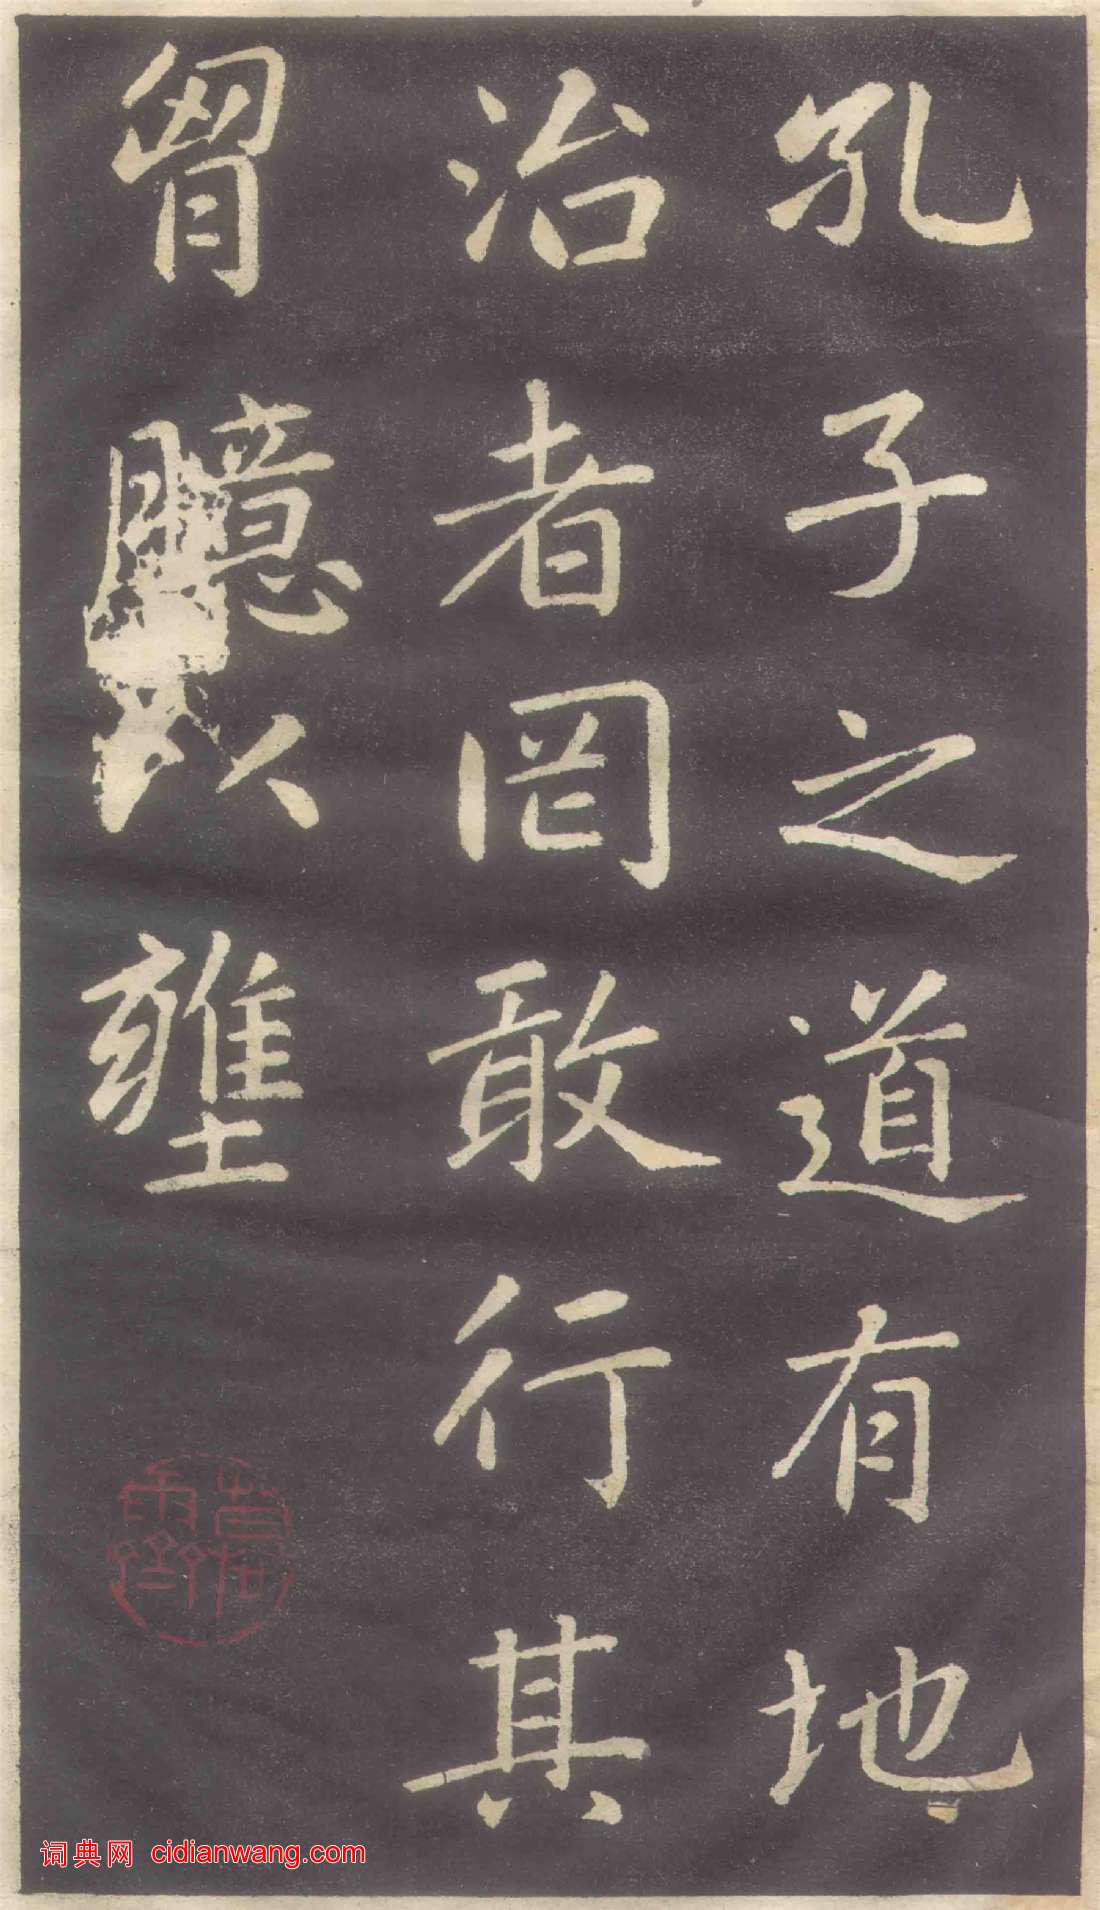 孔子之道有地
治者罔敢行其
胷臆以壅
词典网 cidianwang.com